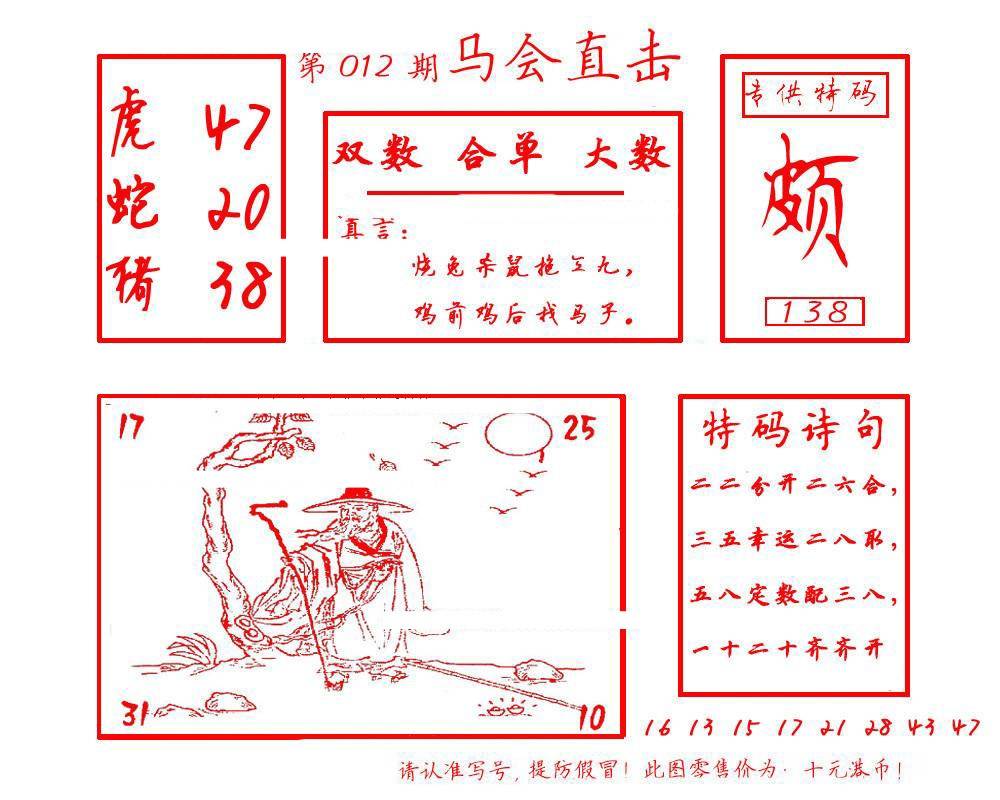 第 012 期 马会直击
虎 47
蛇 20
猪 38
双数 合单 大数
真言:
烧兔杀鼠拖三九,
鸡前鸡后找马子。
专供特码
颇
138
17
25
31
10
特码诗句
二二分开二六合,
三五幸运二八取,
五八定数配三八,
一十二十齐齐开
16 13 15 17 21 28 43 47
请认准写号,提防假冒!此图零售价为·十元港币!